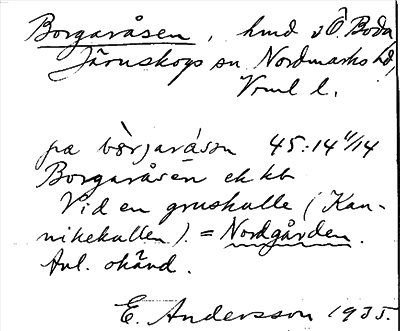 Borgaråsen, hmd i Ö. Boda
Järnskogs sn Nordmarks hd,
Vrml l.
på bòrjaråsən 45:14 4/14
Borgaråsen ek kb
Vid en gruskulle (Kan-
nikekullen). = Nordgården.
Anl. okänd.
E. Andersson 1935.